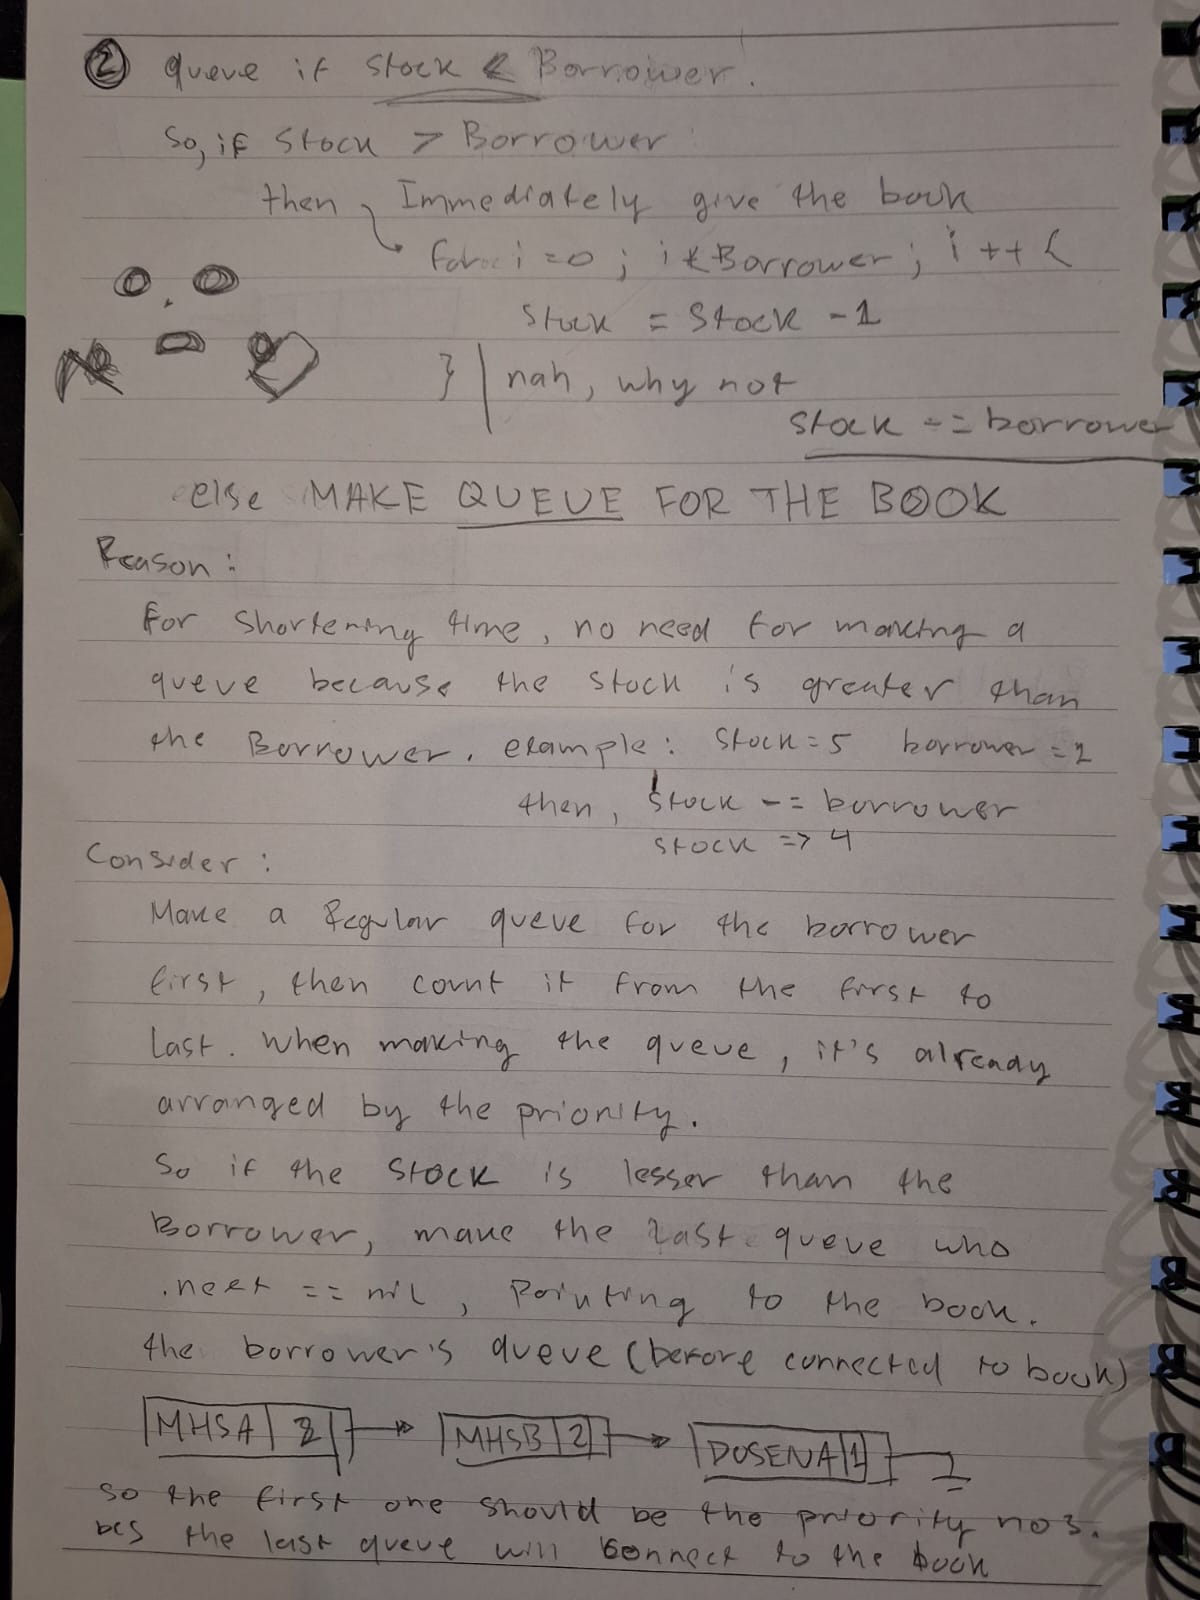 ② queue if stock < Borrower.
So, if Stock > Borrower
then Immediately give the book
for i = 0 ; i < Borrower ; i ++ {
Stock = Stock - 1
} | nah, why not
stock -= borrower
else MAKE QUEUE FOR THE BOOK
Reason :
For Shortening time, no need for making a
queue because the stock is greater than
the Borrower. example : Stock = 5 borrower = 2
then, Stock -= borrower
stock => 4
Consider :
Make a Regular queue for the borrower
first, then count it from the first to
Last. When making the queue, it's already
arranged by the priority.
So if the Stock is lesser than the
Borrower, make the Last queue who
.next == nil, Pointing to the book.
the borrower's queue (before connected to book)
MHSA | 3 → MHSB | 2 → DOSENA | 1
so the first one should be the priority no 3.
bcs the last queue will connect to the book